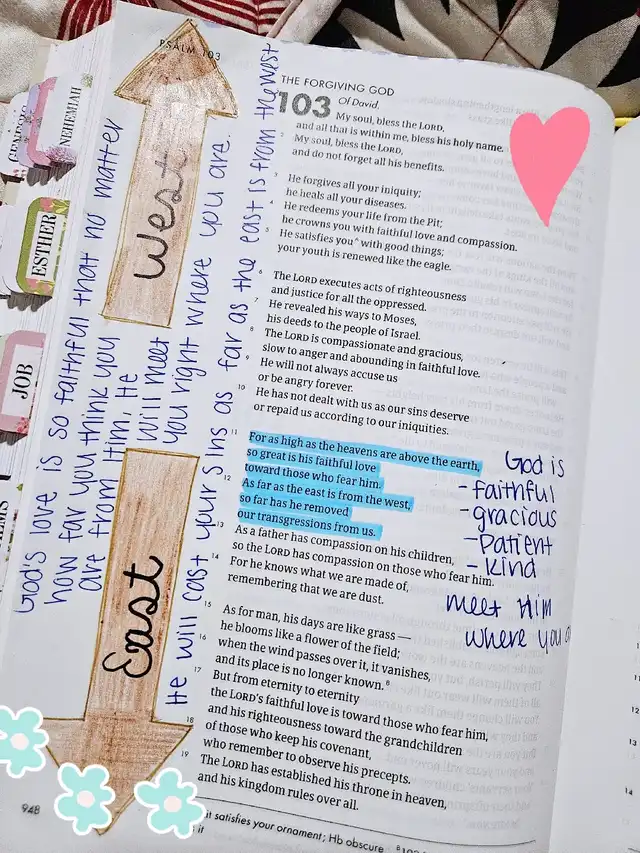 PSALM 103
NEHEMIAH
ESTHER
JOB
West
East
God's love is so faithful that no matter
how far you think you
are from Him, He
will meet
you right where you are.
He will cast your sins as far as the east is from the west
THE FORGIVING GOD
103 Of David.
My soul, bless the LORD,
and all that is within me, bless his holy name.
2 My soul, bless the LORD,
and do not forget all his benefits.
3 He forgives all your iniquity;
he heals all your diseases.
4 He redeems your life from the Pit;
he crowns you with faithful love and compassion.
5 He satisfies you^A with good things;
your youth is renewed like the eagle.
6 The LORD executes acts of righteousness
and justice for all the oppressed.
7 He revealed his ways to Moses,
his deeds to the people of Israel.
8 The LORD is compassionate and gracious,
slow to anger and abounding in faithful love.
9 He will not always accuse us
or be angry forever.
10 He has not dealt with us as our sins deserve
or repaid us according to our iniquities.
11 For as high as the heavens are above the earth,
so great is his faithful love
toward those who fear him.
12 As far as the east is from the west,
so far has he removed
our transgressions from us.
13 As a father has compassion on his children,
so the LORD has compassion on those who fear him.
14 For he knows what we are made of,
remembering that we are dust.
15 As for man, his days are like grass —
he blooms like a flower of the field;
16 when the wind passes over it, it vanishes,
and its place is no longer known.^B
17 But from eternity to eternity
the LORD's faithful love is toward those who fear him,
and his righteousness toward the grandchildren
18 of those who keep his covenant,
who remember to observe his precepts.
19 The LORD has established his throne in heaven,
and his kingdom rules over all.
God is
- faithful
- gracious
- Patient
- kind
meet Him
where you
948
it satisfies your ornament; Hb obscure
it
12
13
14